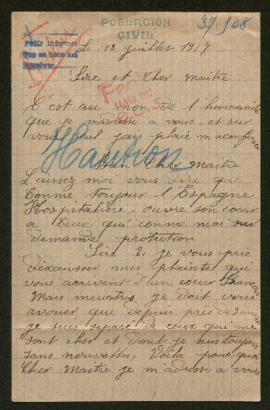 POBLACION
CIVIL
37908
Pedir informes
Le 13 juillets 1917
Sire et Cher Maitre
C'est au nom de l'humanité
que je m'adresse a vous, et sur
vous seul j'ai placé ma confiance
Haution
Cher Maitre
Laissez moi vous dire que
Comme toujours l'Espagne
Hospitalière, ouvre son cœur
a ceux qui comme moi
demande protection
Sire, je vous prie
d'exausser mes plaintes qui
vous arrivent d'un cœur Français
Mais meurtris, je doit vous
avouer que depuis près de 3 ans
je suis séparé de ceux qui me
sont cher et dont je suis toujours
sans nouvelles, Voila pourquoi
Cher Maitre je m'adresse a vous